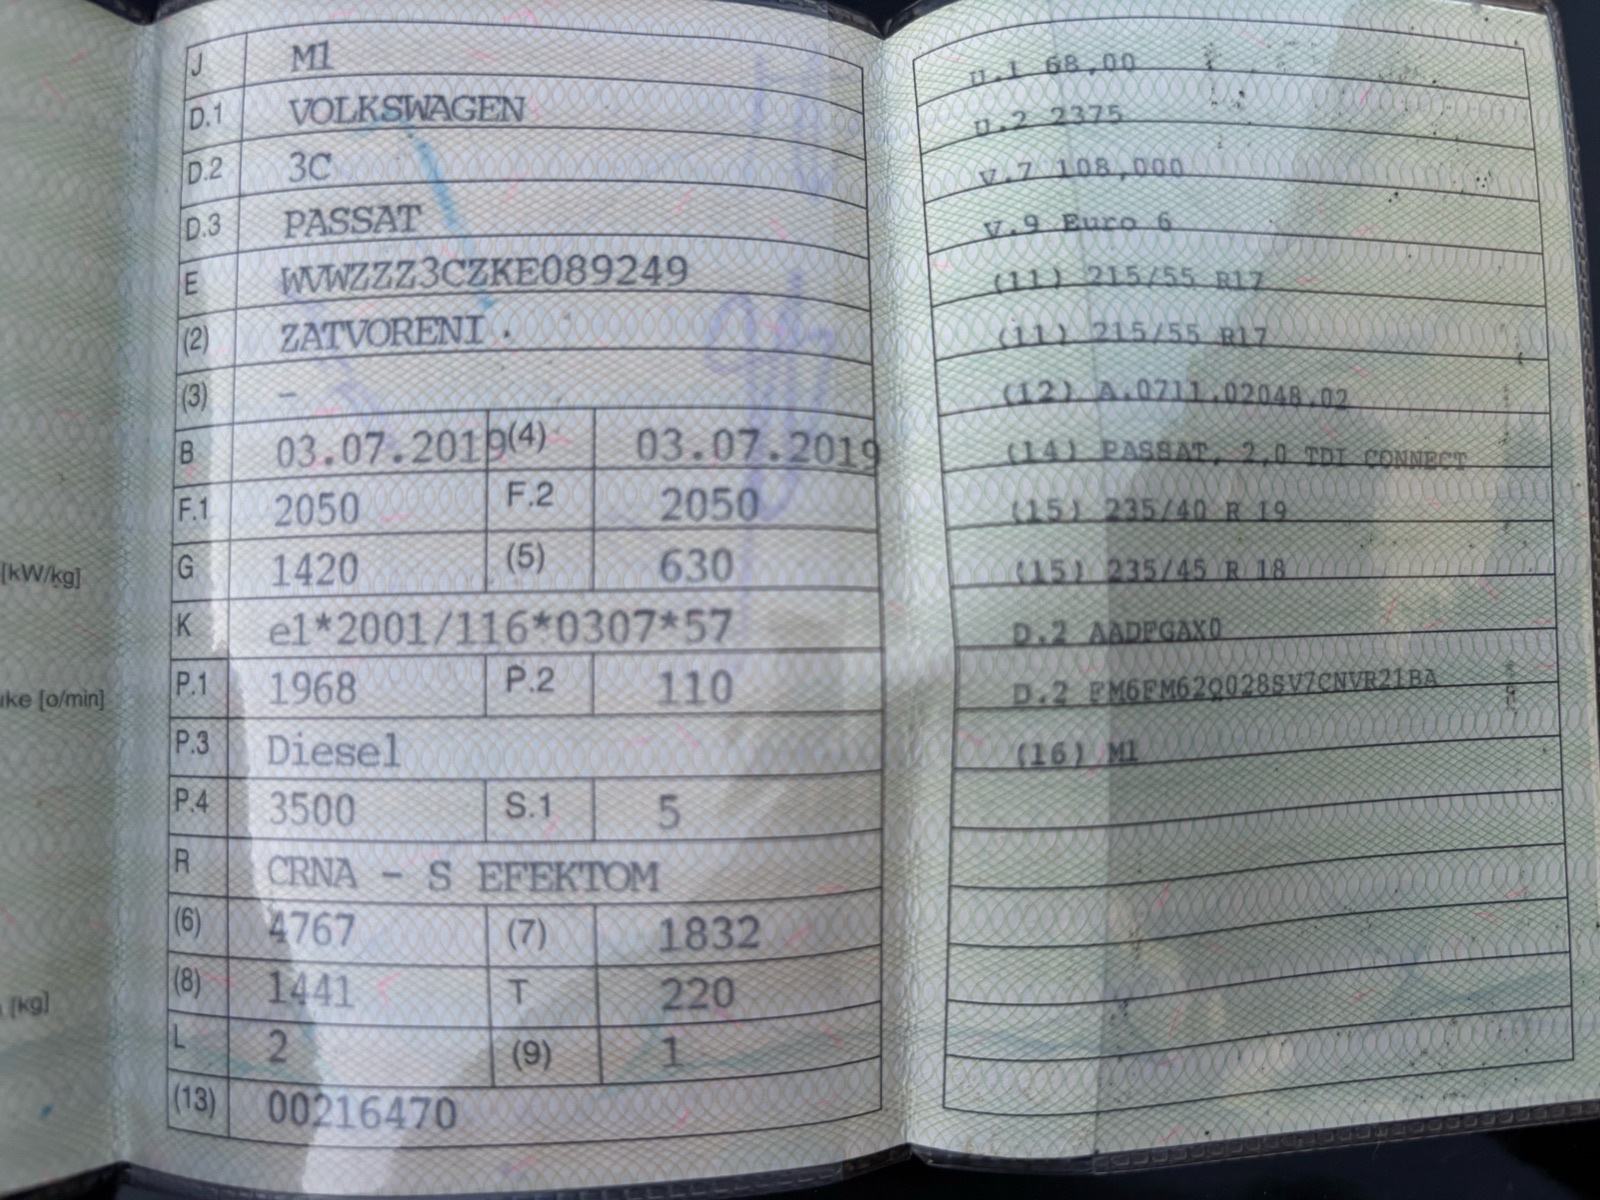 [kW/kg]
[o/min]
[kg]
J M1
D.1 VOLKSWAGEN
D.2 3C
D.3 PASSAT
E WVWZZZ3CZKE089249
(2) ZATVORENI .
(3) –
B 03.07.2019 (4) 03.07.2019
F.1 2050 F.2 2050
G 1420 (5) 630
K e1*2001/116*0307*57
P.1 1968 P.2 110
P.3 Diesel
P.4 3500 S.1 5
R CRNA – S EFEKTOM
(6) 4767 (7) 1832
(8) 1441 T 220
L 2 (9) 1
(13) 00216470
U.1 68,00
U.2 2375
V.7 108,000
V.9 Euro 6
(11) 215/55 R17
(11) 215/55 R17
(12) A.0711.02048.02
(14) PASSAT, 2,0 TDI CONNECT
(15) 235/40 R 19
(15) 235/45 R 18
D.2 AADFGAX0
D.2 FM6FM62Q028SV7CNVR21BA
(16) M1